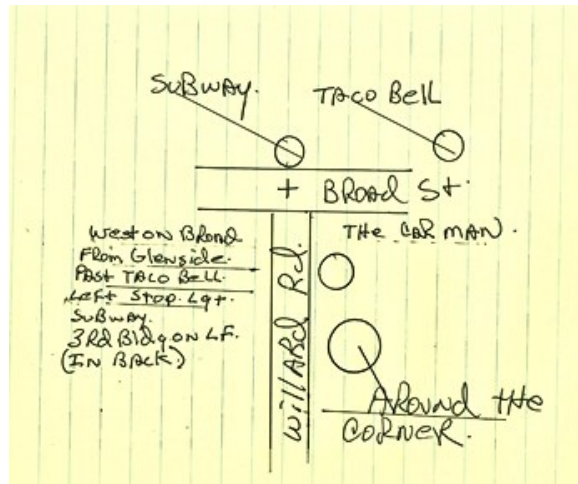 SUBWAY.
TACO BELL
+ BROAD St.
THE CAR MAN.
West on BROAD
From Glenside.
Past TACO BELL.
Left Stop. Lgt.
SUBWAY.
3Rd Bldg on LF.
(IN BACK.)
WillARd Rd.
AROUND tHE
CORNER.